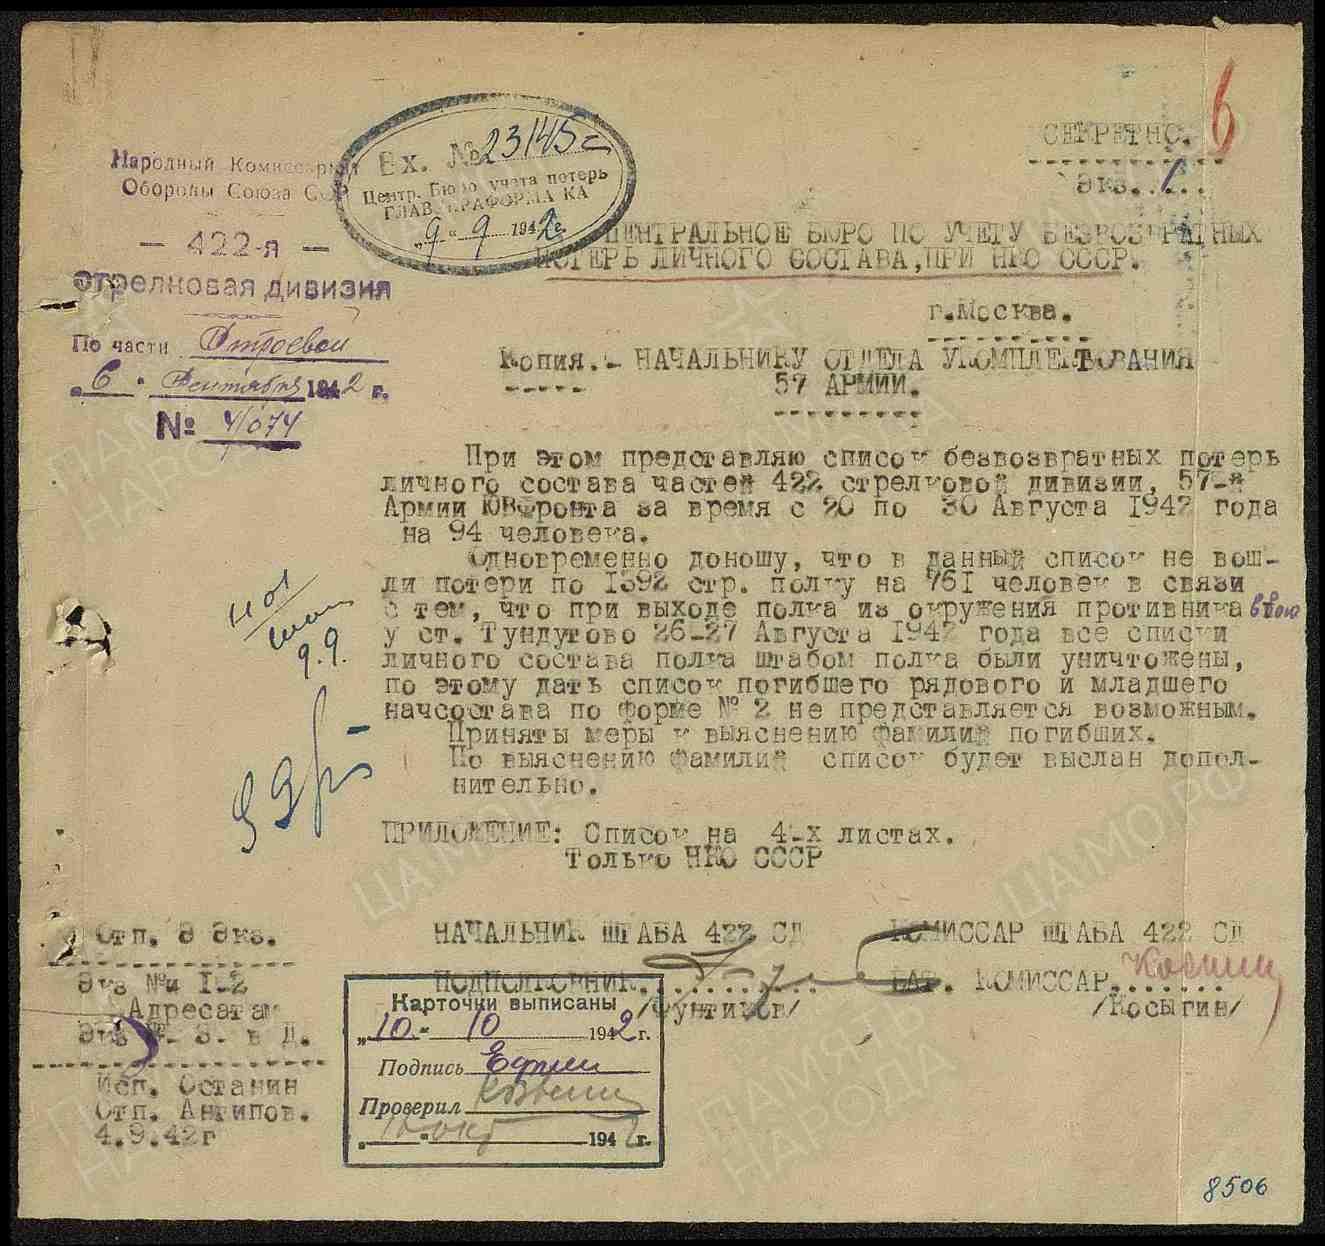 6
СЕКРЕТНО.
Экз. 1
Вх. № 23145с
Центр. Бюро учета потерь
ГЛАВУПРАФОРМА КА
"9" 9 1942 г.
Народный Комиссариат
Обороны Союза ССР
— 422-я —
стрелковая дивизия
По части Строевой
"6" Сентября 1942 г.
№ 4/074
ЦЕНТРАЛЬНОЕ БЮРО ПО УЧЕТУ БЕЗВОЗВРАТНЫХ
ПОТЕРЬ ЛИЧНОГО СОСТАВА, ПРИ НКО СССР.
г.Москва.
Копия.- НАЧАЛЬНИКУ ОТДЕЛА УКОМПЛЕКТОВАНИЯ
57 АРМИИ.
При этом представляю список безвозвратных потерь
личного состава частей 422 стрелковой дивизии, 57-й
Армии ЮВфронта за время с 20 по 30 Августа 1942 года
на 94 человека.
Одновременно доношу, что в данный список не вош-
ли потери по 1392 стр. полку на 761 человек в связи
с тем, что при выходе полка из окружения противника
у ст. Тундутово 26-27 Августа 1942 года все списки
личного состава полка штабом полка были уничтожены,
по этому дать список погибшего рядового и младшего
начсостава по форме № 2 не представляется возможным.
Приняты меры к выяснению фамилий погибших.
По выяснению фамилий список будет выслан допол-
нительно.
9.9.
ПРИЛОЖЕНИЕ: Список на 4-х листах.
Только НКО СССР
НАЧАЛЬНИК ШТАБА 422 СД КОМИССАР ШТАБА 422 СД
ПОДПОЛКОВНИК. БАТ. КОМИССАР.
/Фунтиков/ /Косыгин/
Отп. 3 Экз.
Экз №№ 1-2
Адресатам
Экз №. 3. в Д.
Исп. Останин
Отп. Антипов.
4.9.42г
Карточки выписаны
"10" 10 1942 г.
Подпись
Проверил
"10" окт 1942 г.
8506
ПАМЯТЬ НАРОДА
ЦАМО.РФ